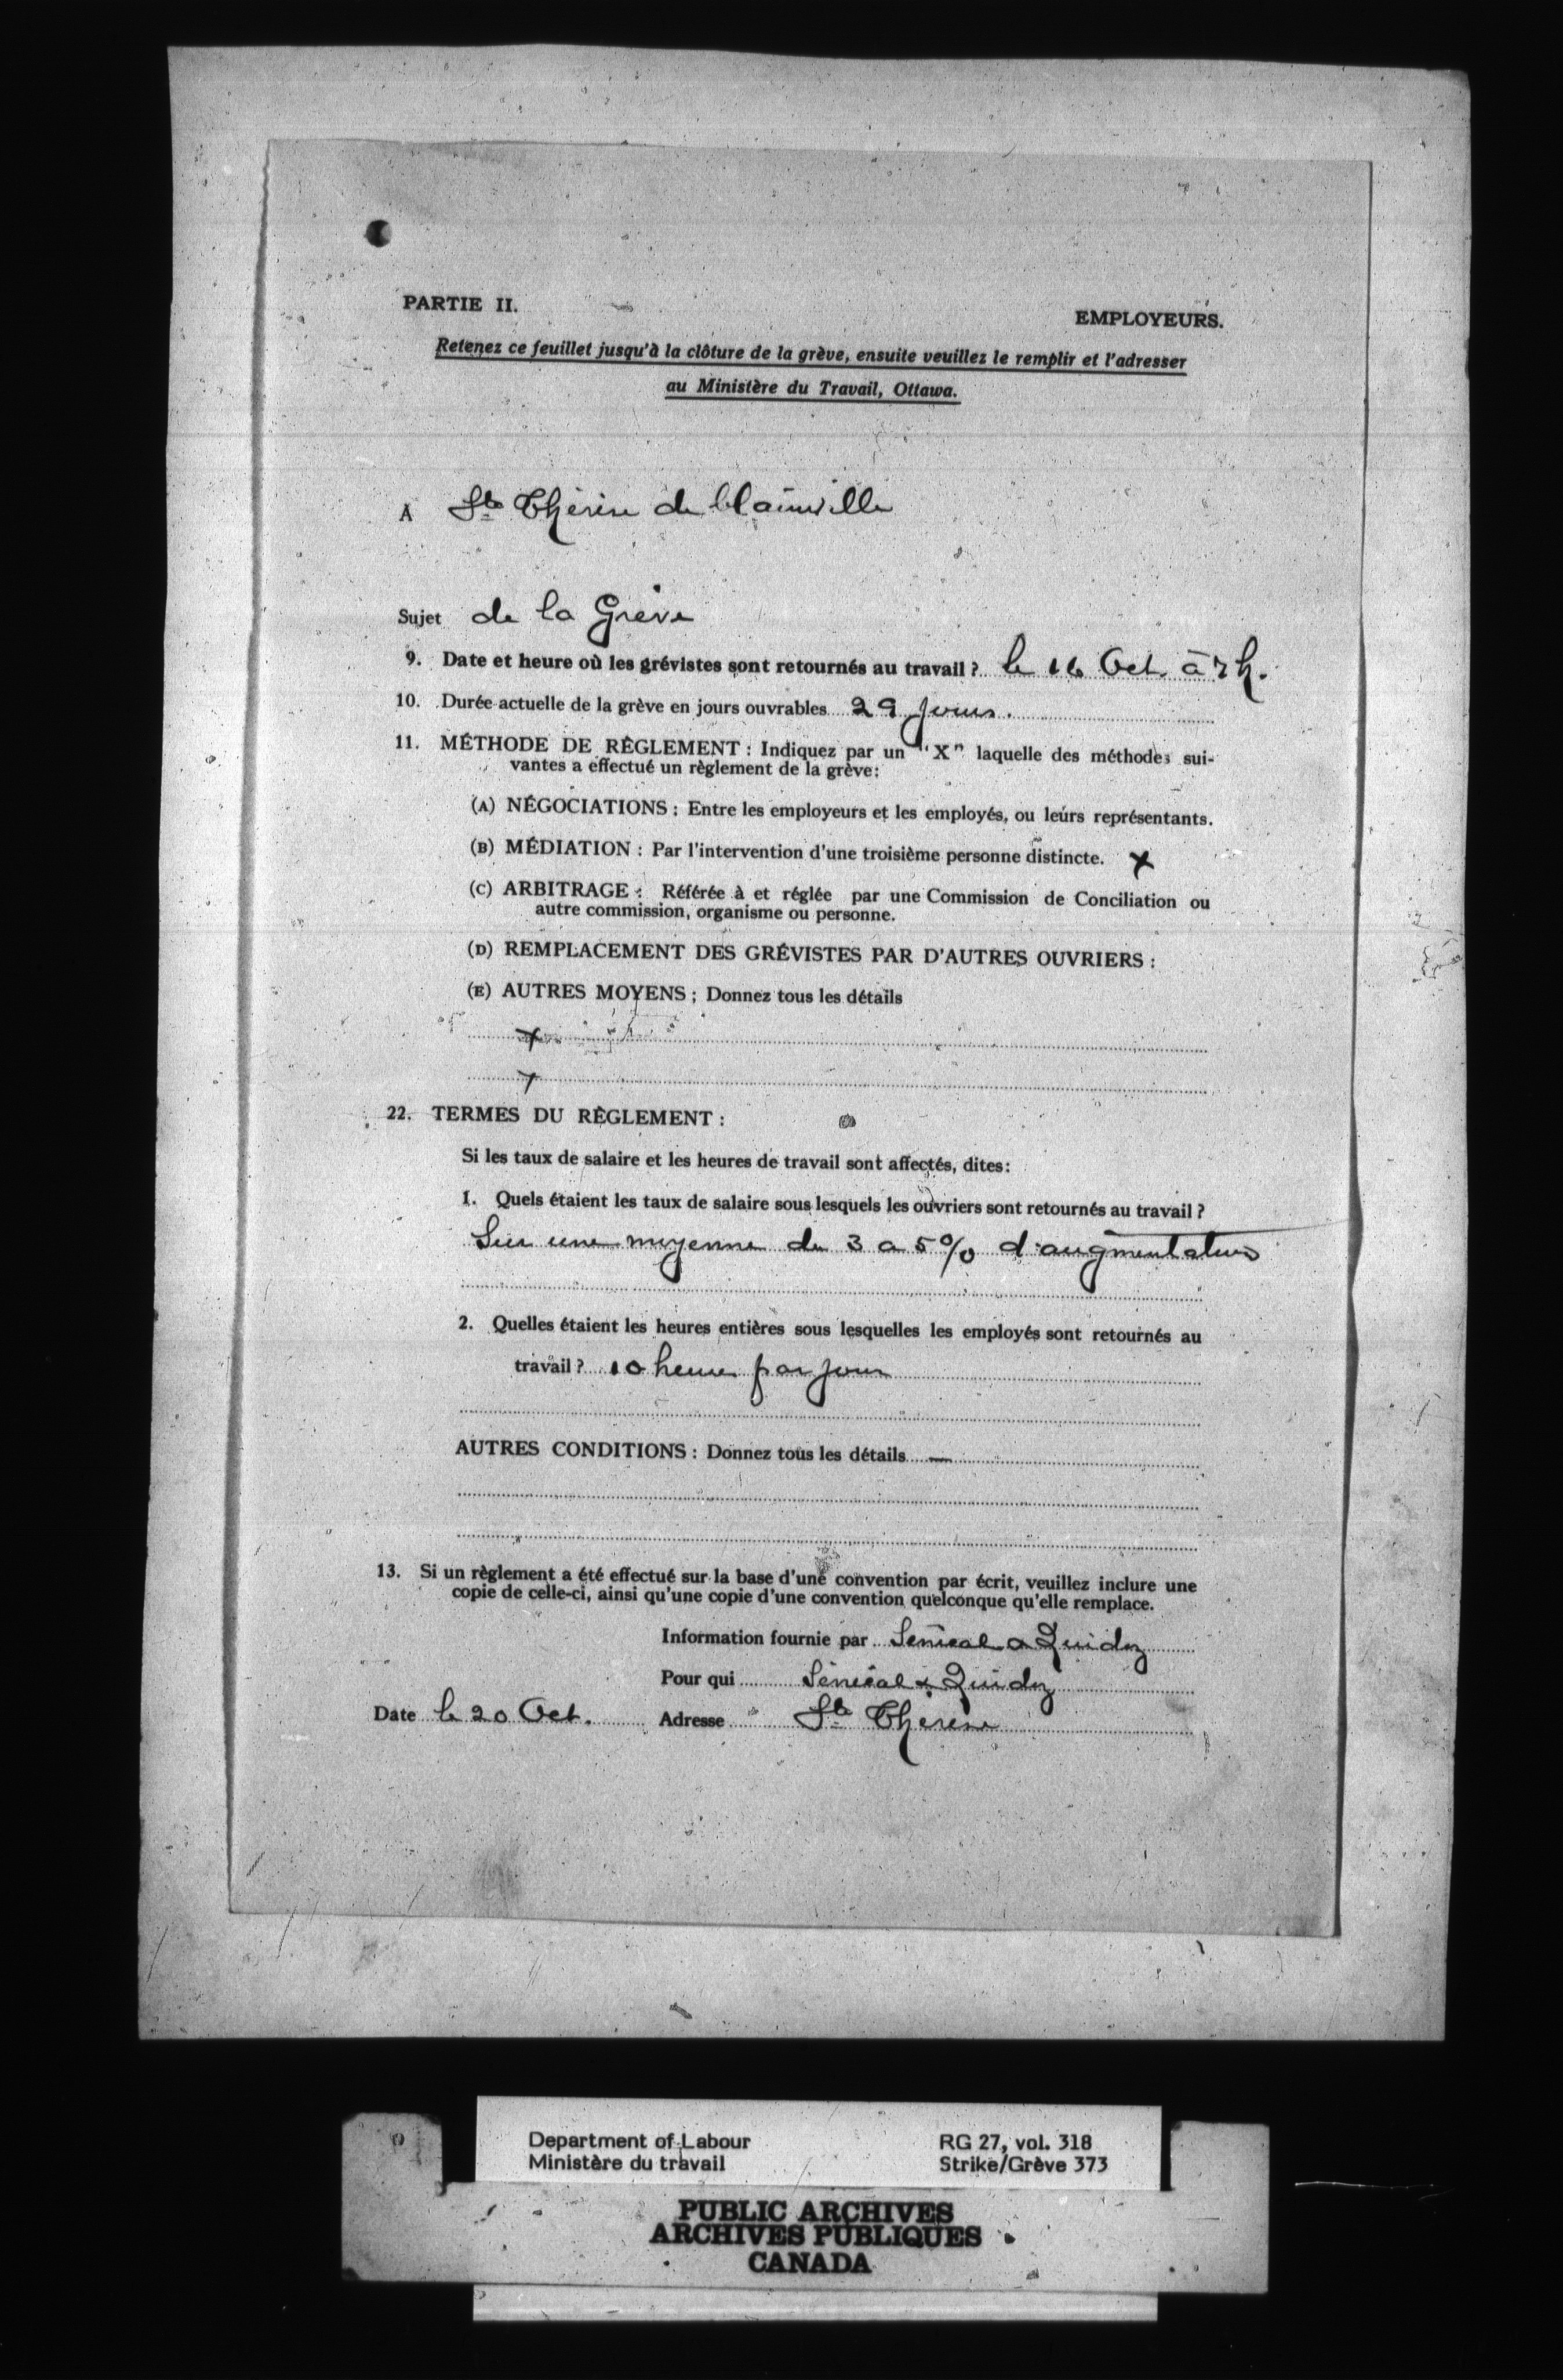 PARTIE II.
EMPLOYEURS.
Retenez ce feuillet jusqu'à la clôture de la grève, ensuite veuillez le remplir et l'adresser
au Ministère du Travail, Ottawa.
A Ste Thérèse de blainville
Sujet de la Grève
9. Date et heure où les grévistes sont retournés au travail ? le 16 Oct. à 7 h.
10. Durée actuelle de la grève en jours ouvrables 29 jours.
11. MÉTHODE DE RÈGLEMENT : Indiquez par un "X" laquelle des méthodes sui-
vantes a effectué un règlement de la grève:
(A) NÉGOCIATIONS : Entre les employeurs et les employés, ou leurs représentants.
(B) MÉDIATION : Par l'intervention d'une troisième personne distincte. X
(C) ARBITRAGE : Référée à et réglée par une Commission de Conciliation ou
autre commission, organisme ou personne.
(D) REMPLACEMENT DES GRÉVISTES PAR D'AUTRES OUVRIERS :
(E) AUTRES MOYENS ; Donnez tous les détails
22. TERMES DU RÈGLEMENT :
Si les taux de salaire et les heures de travail sont affectés, dites:
1. Quels étaient les taux de salaire sous lesquels les ouvriers sont retournés au travail ?
Sur une moyenne de 3 a 5% d'augmentation
2. Quelles étaient les heures entières sous lesquelles les employés sont retournés au
travail ? 10 heures par jour
AUTRES CONDITIONS : Donnez tous les détails —
13. Si un règlement a été effectué sur la base d'une convention par écrit, veuillez inclure une
copie de celle-ci, ainsi qu'une copie d'une convention quelconque qu'elle remplace.
Information fournie par Sénécal & Quidoz
Pour qui Sénécal & Quidoz
Date le 20 Oct. Adresse Ste Thérèse
Department of Labour RG 27, vol. 318
Ministère du travail Strike/Grève 373
PUBLIC ARCHIVES
ARCHIVES PUBLIQUES
CANADA